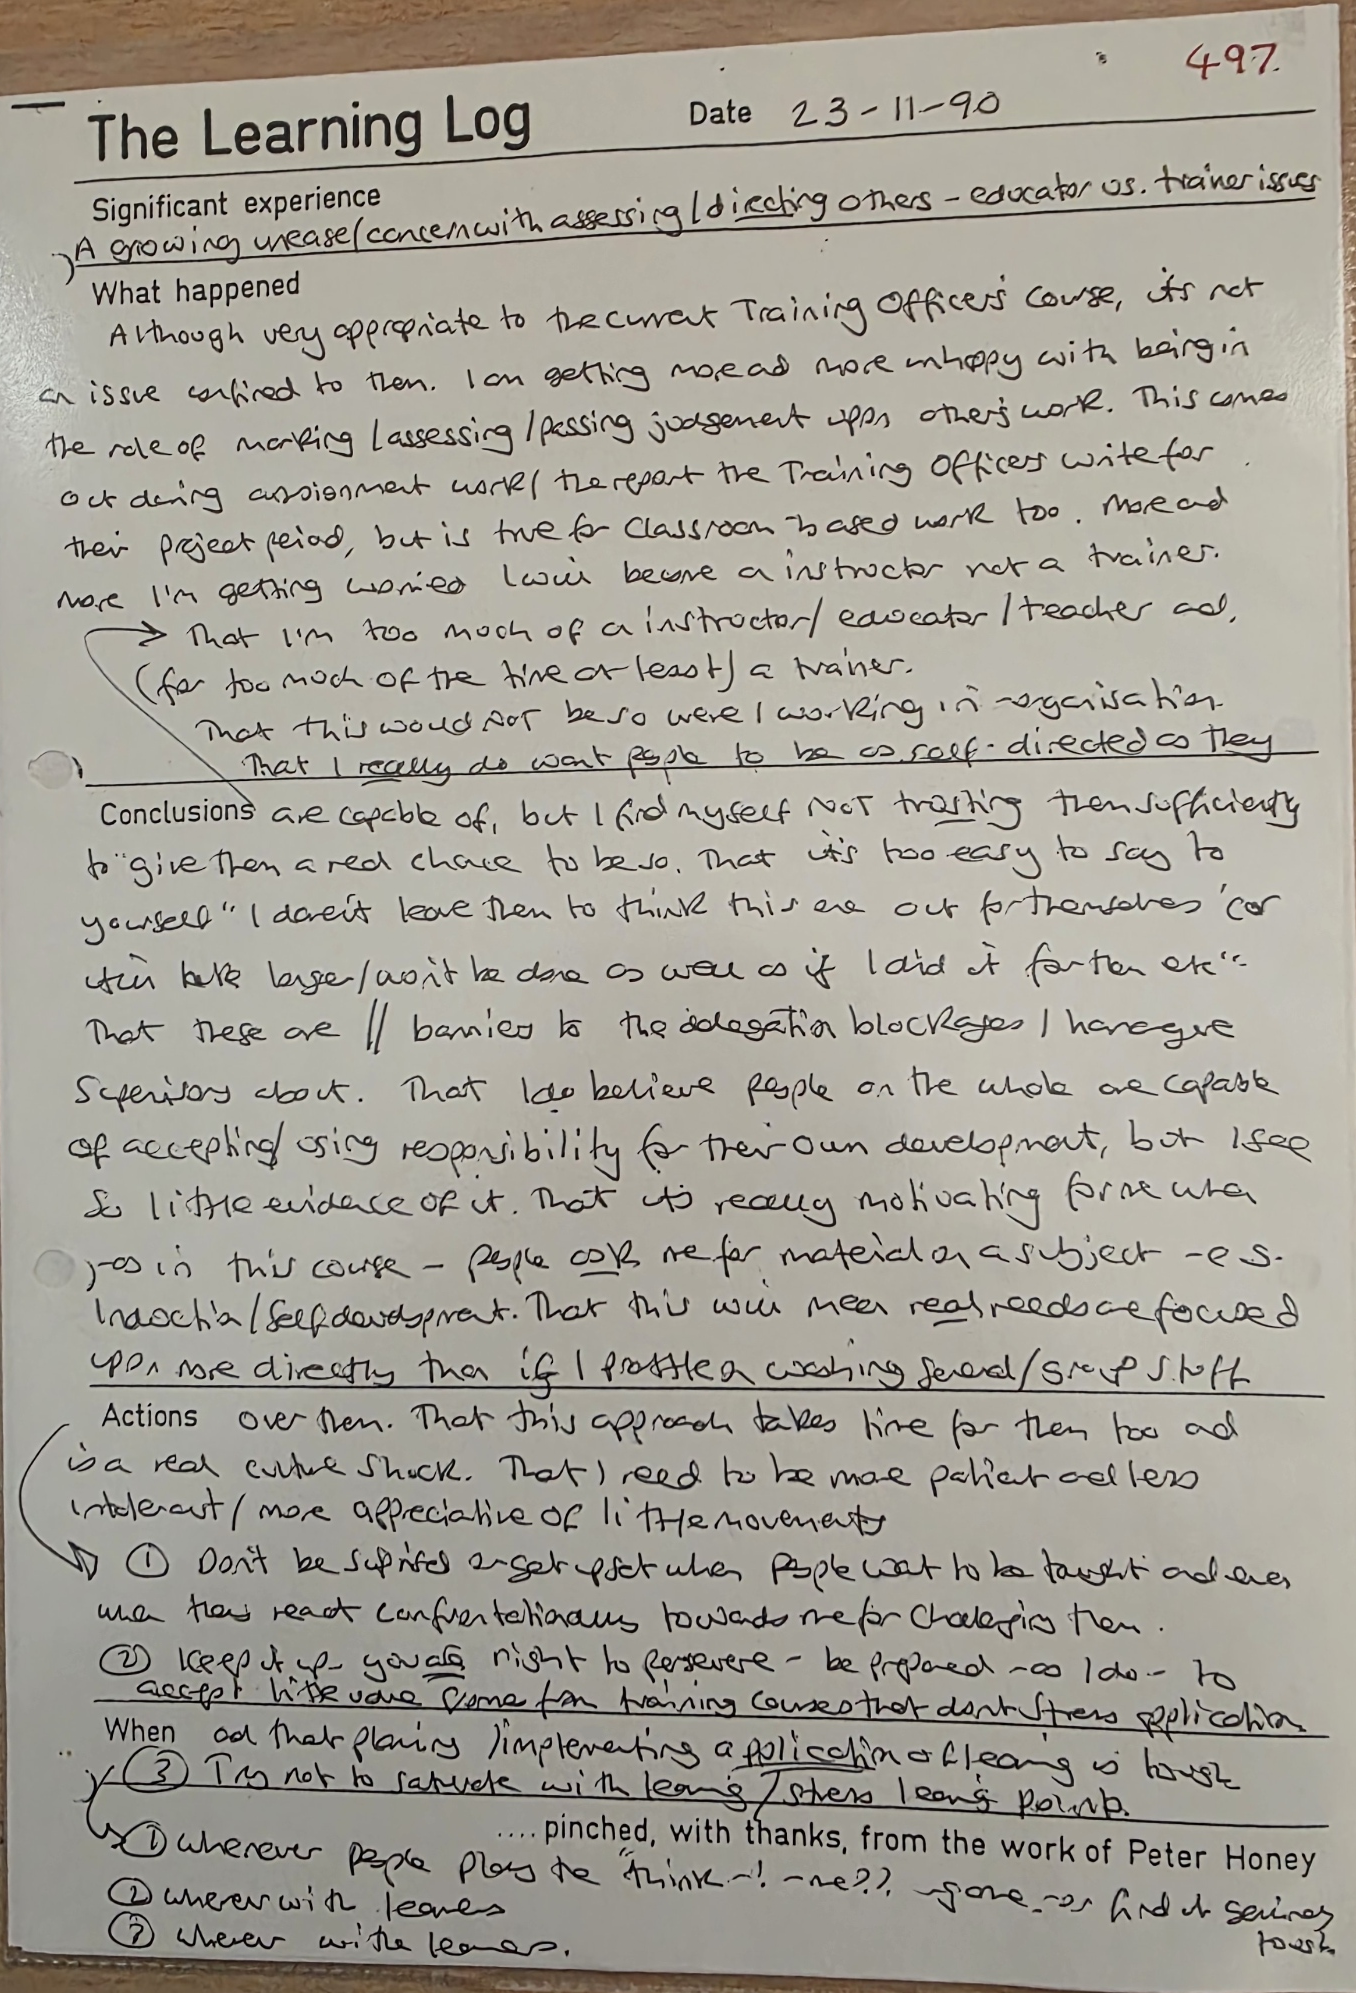 497.
The Learning Log Date 23-11-90
Significant experience
A growing unease/concern with assessing/directing others - educator vs. trainer issues
What happened
Although very appropriate to the current Training Officer's Course, it's not
an issue confined to them. I am getting more and more unhappy with being in
the role of marking/assessing/passing judgement upon other's work. This comes
out during assignment work/the report the Training Officers write for
their project period, but is true for classroom-based work too. More and
more I'm getting worried I will become a instructor not a trainer.
That I'm too much of a instructor/educator/teacher and,
(for too much of the time at least) a trainer.
That this would NOT be so were I working in-organisation.
That I really do want people to be as self-directed as they
Conclusions are capable of, but I find myself NOT trusting them sufficiently
to give them a real chance to be so. That it's too easy to say to
yourself "I daren't leave them to think this one out for themselves 'cos
it'll take longer/won't be done as well as if I did it for them etc".
That these are // barriers to the delegation blockages I harangue
Supervisors about. That I do believe people on the whole are capable
of accepting/using responsibility for their own development, but I see
so little evidence of it. That it's really motivating for me when
- as in this course - people ask me for material on a subject - e.g.
Induction/Self development. That this will mean real needs are focused
upon more directly than if I prattle on washing general/group stuff
Actions over them. That this approach takes time for them too and
is a real culture shock. That I need to be more patient and less
intolerant/more appreciative of little movements
① Don't be suprised or get upset when people want to be taught and even
when they react confrontationally towards me for challenging them.
② Keep it up - you are right to persevere - be prepared - as I do - to
accept little value came from training courses that don't stress application
When and that planning/implementing application of learning is tough
③ Try not to saturate with learning/stress learning points.
.... pinched, with thanks, from the work of Peter Honey
① Wherever people play the "think -! - me??" - game - or find it seriously
tough.
② Whenever with learners
③ Whenever with learners.